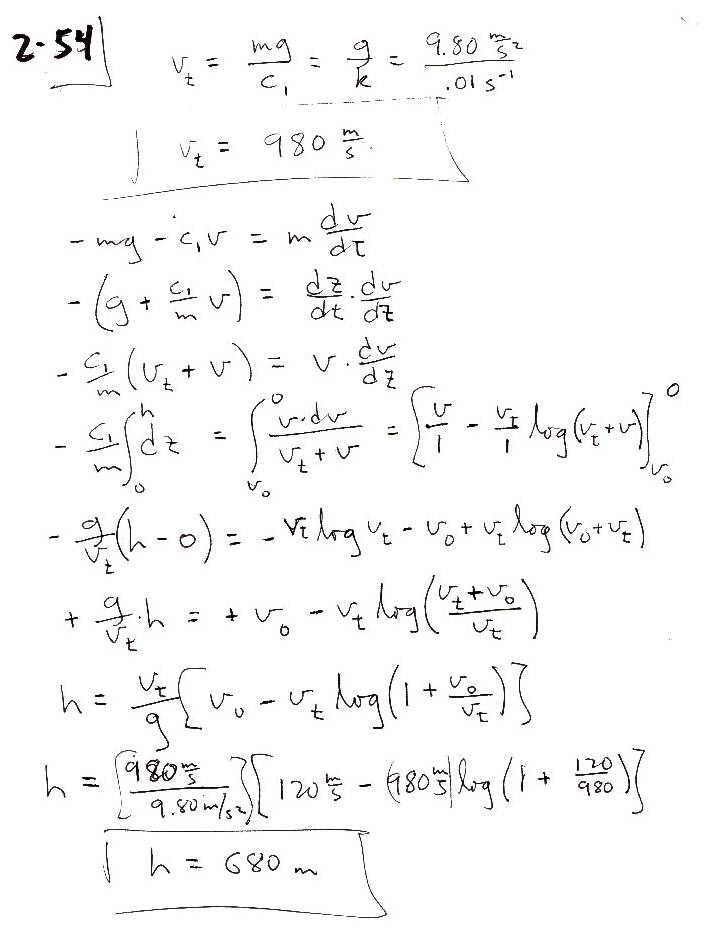 2-54
v_t = mg/c_1 = g/k = 9.80 m/s^2 / .01 s^-1
v_t = 980 m/s.
- mg - c_1 v = m dv/dt
- (g + c_1/m v) = dz/dt · dv/dz
- c_1/m (v_t + v) = v · dv/dz
- c_1/m ∫_0^h dz = ∫_{v_0}^0 v·dv/(v_t + v) = [v/1 - v_t/1 log(v_t + v)]_{v_0}^0
- g/v_t (h - 0) = - v_t log v_t - v_0 + v_t log(v_0 + v_t)
+ g/v_t · h = + v_0 - v_t log((v_t + v_0)/v_t)
h = v_t/g [v_0 - v_t log(1 + v_0/v_t)]
h = [980 m/s / 9.80 m/s^2][120 m/s - (980 m/s) log(1 + 120/980)]
h = 680 m